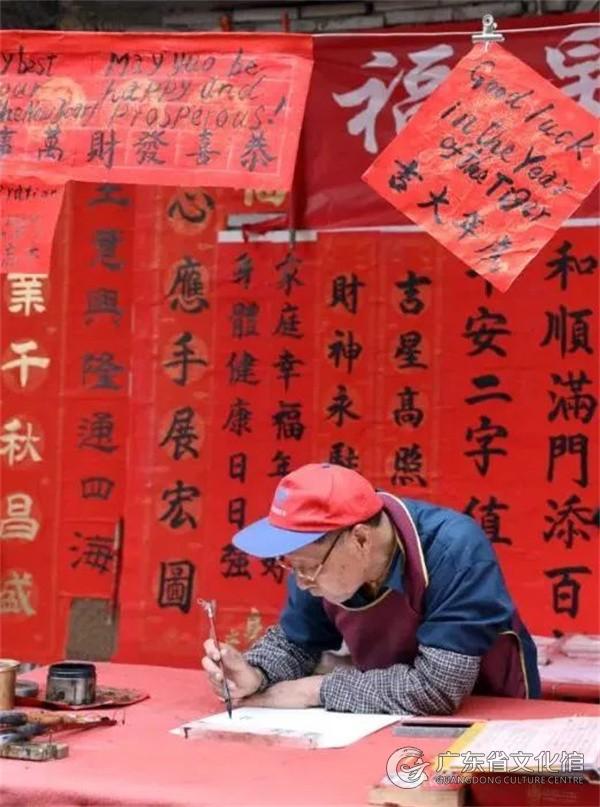 y best
our
the New Year!
May yuo be
happy and
prosperous!
萬財發喜恭
ration
Good luck
in the Year
of the Tiger
吉大年
福
業千秋昌盛
意興隆通四海
心應手展宏圖
身體健康日日強
家庭幸福年
好
財神永駐
吉星高照
平安二字值
和順滿門添百
广东省文化馆
GUANGDONG CULTURE CENTRE